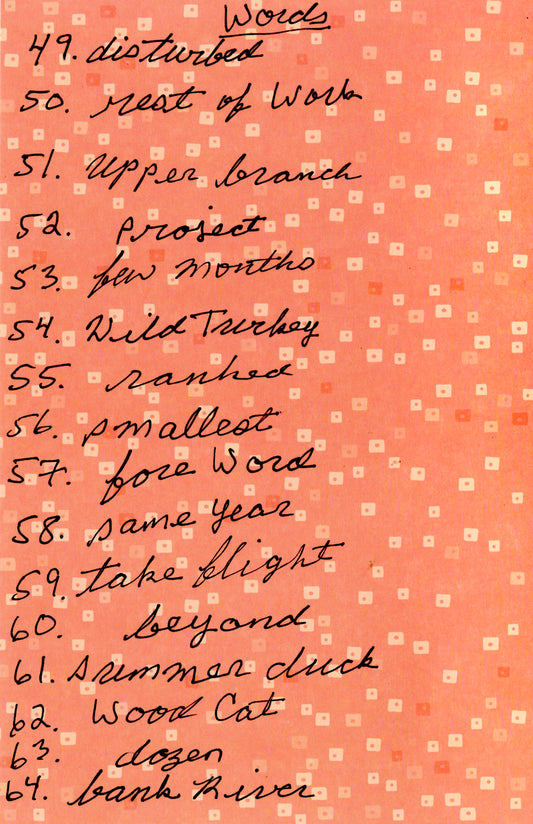 Words
49. disturbed
50. rest of Work
51. Upper branch
52. project
53. few months
54. Wild Turkey
55. ranked
56. smallest
57. fore Word
58. same year
59. take flight
60. beyond
61. summer duck
62. Wood Cat
63. dozen
64. bank River